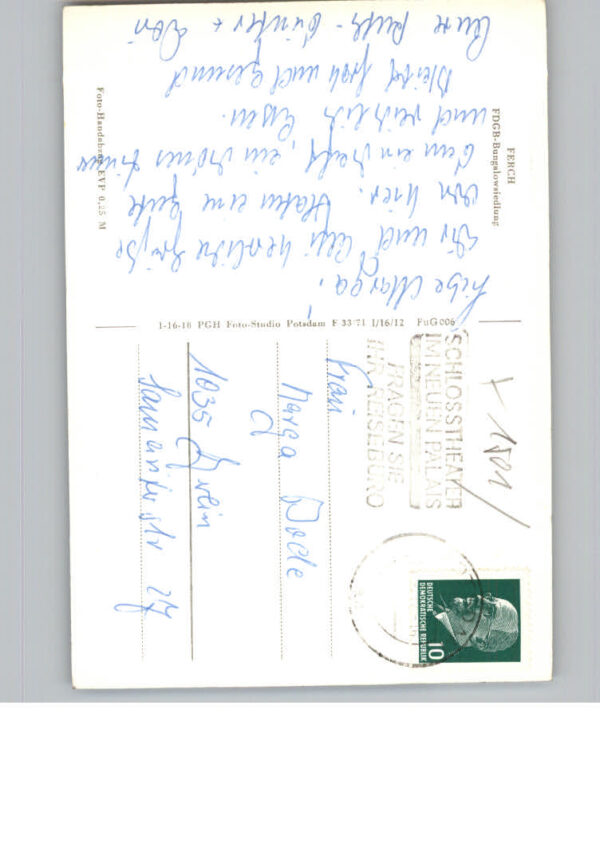 FERCH
FDGB-Bungalowsiedlung
Liebe Marga.
Dir und Celli herzliche Grüße
von hier. Haben eine gute
ein schönes Zimmer
und reichlich Essen.
Bleibt froh und gesund
Eure Ruth - Günter +
Foto-Handabzug EVP 0,25 M
1-16-18 PGH Foto-Studio Potsdam F 33/71 I/16/12 FuG 006
SCHLOSSTHEATER
IM NEUEN PALAIS
FRAGEN SIE
IHR REISEBÜRO
+ 1501/
DEUTSCHE
DEMOKRATISCHE REPUBLIK
10
Frau
Marga Dode
1035 Berlin
Samariterstr 27